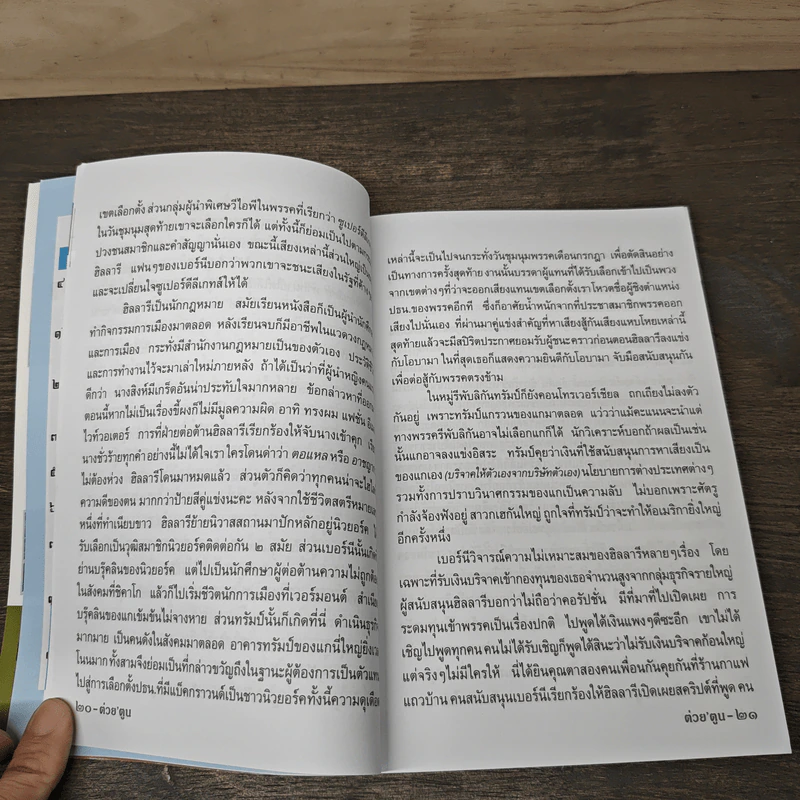 เขตเลือกตั้ง ส่วนกลุ่มผู้นำพิเศษวีไอพีในพรรคที่เรียกว่า ซูเปอร์ดีลิ
ในวันชุมนุมสุดท้ายเขาจะเลือกใครก็ได้ แต่ทั้งนี้ก็ย่อมเป็นไปตาม
ปวงชนสมาชิกและคำสัญญานั่นเอง ขณะนี้เสียงเหล่านี้ส่วนใหญ่เป็น
ฮิลลารี แฟนๆของเบอร์นีบอกว่าพวกเขาจะชนะเสียงในรัฐที่
และจะเปลี่ยนใจซูเปอร์ดีลิเกทส์ให้ได้
ฮิลลารีเป็นนักกฎหมาย สมัยเรียนหนังสือก็เป็นผู้นำนัก
ทำกิจกรรมการเมืองมาตลอด หลังเรียนจบก็มีอาชีพในแวดวงกฎหมาย
และการเมือง กระทั่งมีสำนักงานกฎหมายเป็นของตัวเอง
และการทำงานไว้จะมาเล่าใหม่ภายหลัง ถ้าได้เป็นว่าที่ผู้นำหญิง
ดีกว่า นางสิงห์มีเกร็ดอันน่าประทับใจมากหลาย ข้อกล่าวหาที่
ตอนนี้หากไม่เป็นเรื่องขี้ผงก็ไม่มีมูลความผิด อาทิ ทรงผม แฟชั่น
ไวท์วอเตอร์ การที่ฝ่ายต่อต้านฮิลลารีเรียกร้องให้จับนางเข้าคุก
นางชั่วร้ายทุกคำ อย่างนี้ไม่ได้ใจเรา ใครโดนด่าว่า ตอแหล หรือ
ไม่ต้องห่วง ฮิลลารีโดนมาหมดแล้ว ส่วนตัวก็คิดว่าทุกคนน่าจะ
ความดีของตน มากกว่าป้ายสีคู่แข่งนะคะ หลังจากใช้ชีวิตสตรีหมายเลข
หนึ่งที่ทำเนียบขาว ฮิลลารีย้ายนิวาสสถานมาปักหลักอยู่นิวยอร์ค
รับเลือกเป็นวุฒิสมาชิกนิวยอร์คติดต่อกัน ๒ สมัย ส่วนเบอร์นีนั้น
ย่านบรุ๊คลินของนิวยอร์ค แต่ไปเป็นนักศึกษาผู้ต่อต้านความไม่ถูกต้อง
ในสังคมที่ชิคาโก แล้วก็ไปเริ่มชีวิตนักการเมืองที่เวอร์มอนต์
บรุ๊คลินของแกเข้มข้นไม่จางหาย ส่วนทรัมป์นั้นก็เกิดที่นี่ ดำเนินธุรกิจ
มากมาย เป็นคนดังในสังคมมาตลอด อาคารทรัมป์ของแกนี่ใหญ่ยิ่ง
โนนมากทั้งสามจึงย่อมเป็นที่กล่าวขวัญถึงในฐานะผู้ต้องการเป็นตัวแทน
ไปสู่การเลือกตั้งปธน.ที่มีแบ็คกราวนด์เป็นชาวนิวยอร์คทั้งนี้ความดุเดือด
๒๐-ต่วย'ตูน
เหล่านี้จะเป็นไปจนกระทั่งวันชุมนุมพรรคเดือนกรกฎา เพื่อตัดสินอย่าง
เป็นทางการครั้งสุดท้าย งานนั้นบรรดาผู้แทนที่ได้รับเลือกเข้าไปเป็นพวง
จากเขตต่างๆที่ว่าจะออกเสียงแทนเขตเลือกตั้งเราโหวตชื่อผู้ชิงตำแหน่ง
ปธน.ของพรรคอีกที ซึ่งก็อาศัยน้ำหนักจากที่ประชาสมาชิกพรรคออก
เสียงไปนั่นเอง ที่ผ่านมาคู่แข่งสำคัญที่หาเสียงสู้กันเสียงแทบโหยเหล่านี้
สุดท้ายแล้วจะมีสปิริตประกาศยอมรับผู้ชนะคราวก่อนตอนฮิลลารีลงแข่ง
กับโอบามา ในที่สุดเธอก็แสดงความยินดีกับโอบามา จับมือสนับสนุนกัน
เพื่อต่อสู้กับพรรคตรงข้าม
ในหมู่รีพับลิกันทรัมป์ก็ยังคอนโทรเวอร์เชียล ถกเถียงไม่ลงตัว
กันอยู่ เพราะทรัมป์แกรวนของแกมาตลอด แว่วว่าแม้คะแนนจะนำแต่
ทางพรรครีพับลิกันอาจไม่เลือกแกก็ได้ นักวิเคราะห์บอกถ้าผลเป็นเช่น
นั้นแกอาจลงแข่งอิสระ ทรัมป์คุยว่าเงินที่ใช้สนับสนุนการหาเสียงเป็น
ของแกเอง (บริจาคให้ตัวเองจากบริษัทตัวเอง) นโยบายการต่างประเทศต่างๆ
รวมทั้งการปราบวินาศกรรมของแกเป็นความลับ ไม่บอกเพราะศัตรู
กำลังจ้องฟังอยู่ สาวกเฮกันใหญ่ ถูกใจที่ทรัมป์ว่าจะทำให้อเมริกายิ่งใหญ่
อีกครั้งหนึ่ง
เบอร์นีวิจารณ์ความไม่เหมาะสมของฮิลลารีหลายๆเรื่อง โดย
เฉพาะที่รับเงินบริจาคเข้ากองทุนของเธอจำนวนสูงจากกลุ่มธุรกิจรายใหญ่
ผู้สนับสนุนฮิลลารีบอกว่าไม่ถือว่าคอรัปชั่น มีที่มาที่ไปเปิดเผย การ
ระดมทุนเข้าพรรคเป็นเรื่องปกติ ไปพูดได้เงินแพงๆดีซะอีก เขาไม่ได้
เชิญไปพูดทุกคน คนไม่ได้รับเชิญก็พูดได้สินะว่าไม่รับเงินบริจาคก้อนใหญ่
แต่จริงๆไม่มีใครให้ นี่ได้ยินคุณตาสองคนเพื่อนกันคุยกันที่ร้านกาแฟ
แถวบ้าน คนสนับสนุนเบอร์นีเรียกร้องให้ฮิลลารีเปิดเผยสคริปต์ที่พูด คน
ต่วย'ตูน-๒๑